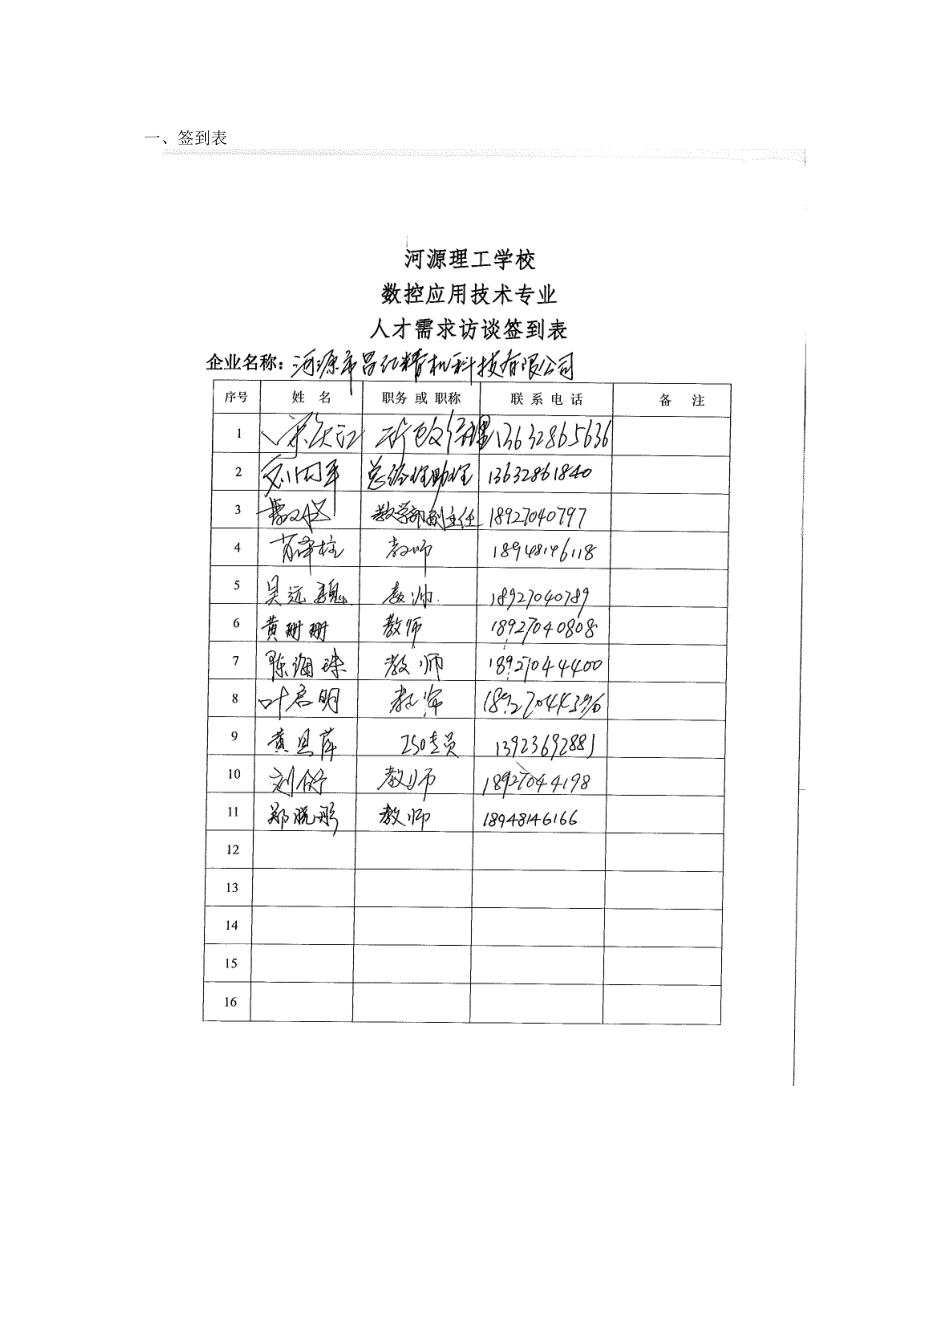 一、签到表
河源理工学校
数控应用技术专业
人才需求访谈签到表
企业名称：河源市昌红精机科技有限公司
序号 姓 名 职务 或 职称 联 系 电 话 备 注
1 行政经理 13632865636
2 总经理助理 13632861840
3 教学部副主任 18927040797
4 教师 18948146118
5 吴远 教师 18927040789
6 黄珊珊 教师 18927040808
7 陈海珠 教师 18927044400
8 叶启明 教师
9 ISO专员 13923692881
10 刘 教师 18927044198
11 郑晓彤 教师 18948146166
12
13
14
15
16